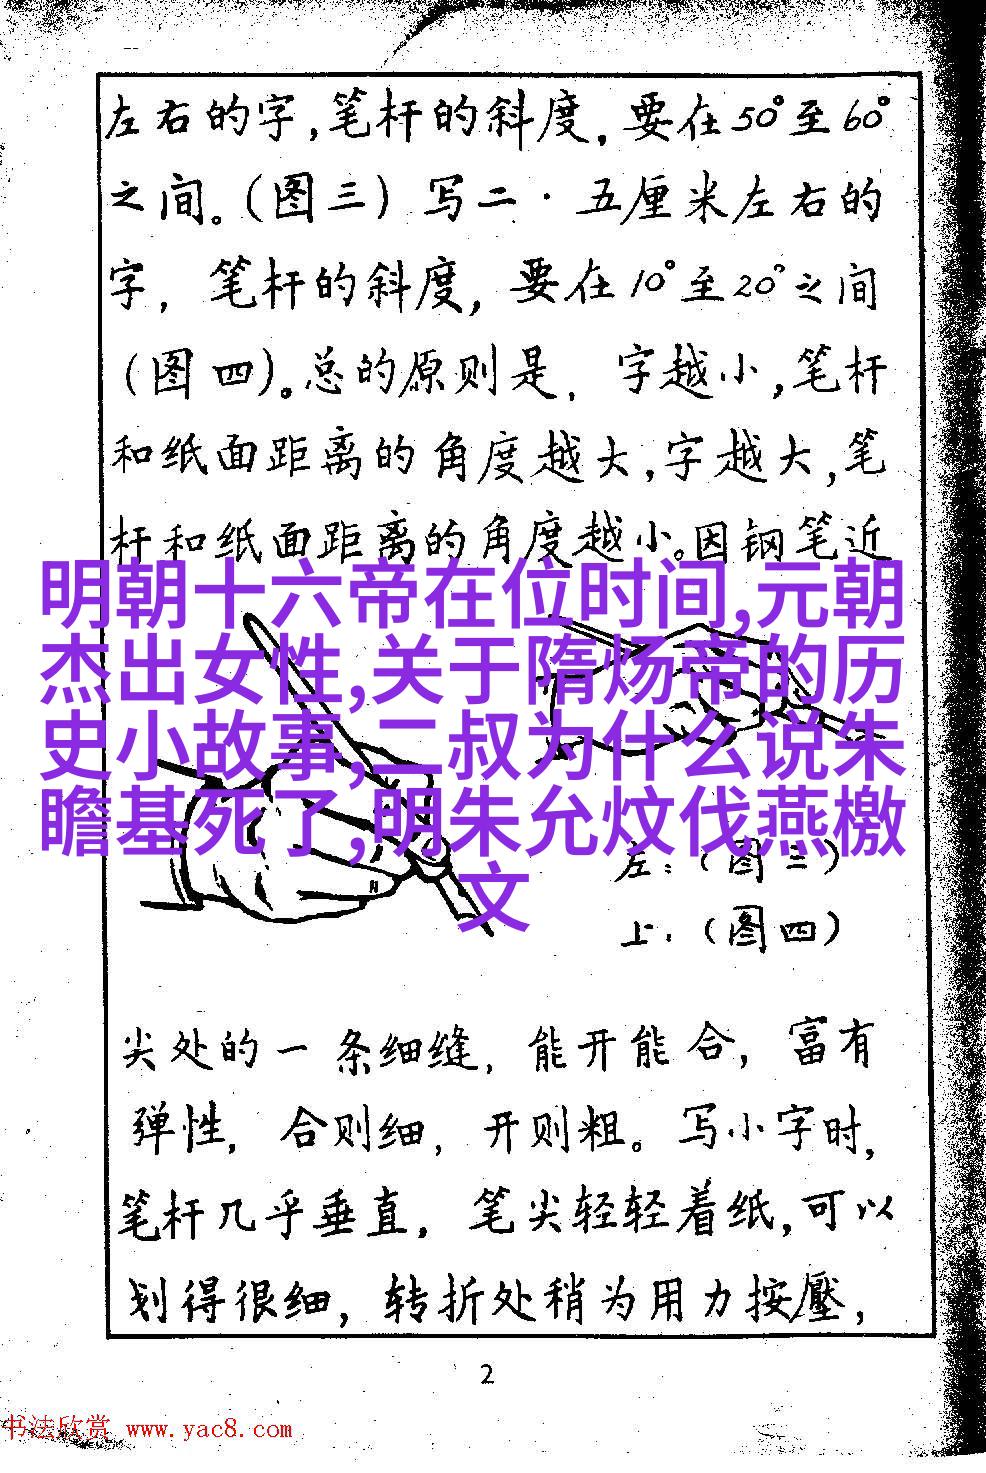 左右的字,笔杆的斜度,要在50°至60°
之间。(图三)写二·五厘米左右的
字,笔杆的斜度,要在10°至20°之间
(图四)。总的原则是,字越小,笔杆
和纸面距离的角度越大,字越大,笔
杆和纸面距离的角度越小。因钢笔近
明朝十六帝在位时间,元朝
杰出女性,关于隋炀帝的历
史小故事,二叔为什么说朱
瞻基死了,明朱允炆伐燕檄
文
左:(图三)
上:(图四)
尖处的一条细缝,能开能合,富有
弹性,合则细,开则粗。写小字时,
笔杆几乎垂直,笔尖轻轻着纸,可以
划得很细,转折处稍为用力按壓,
2
书法欣赏 www.yac8.com